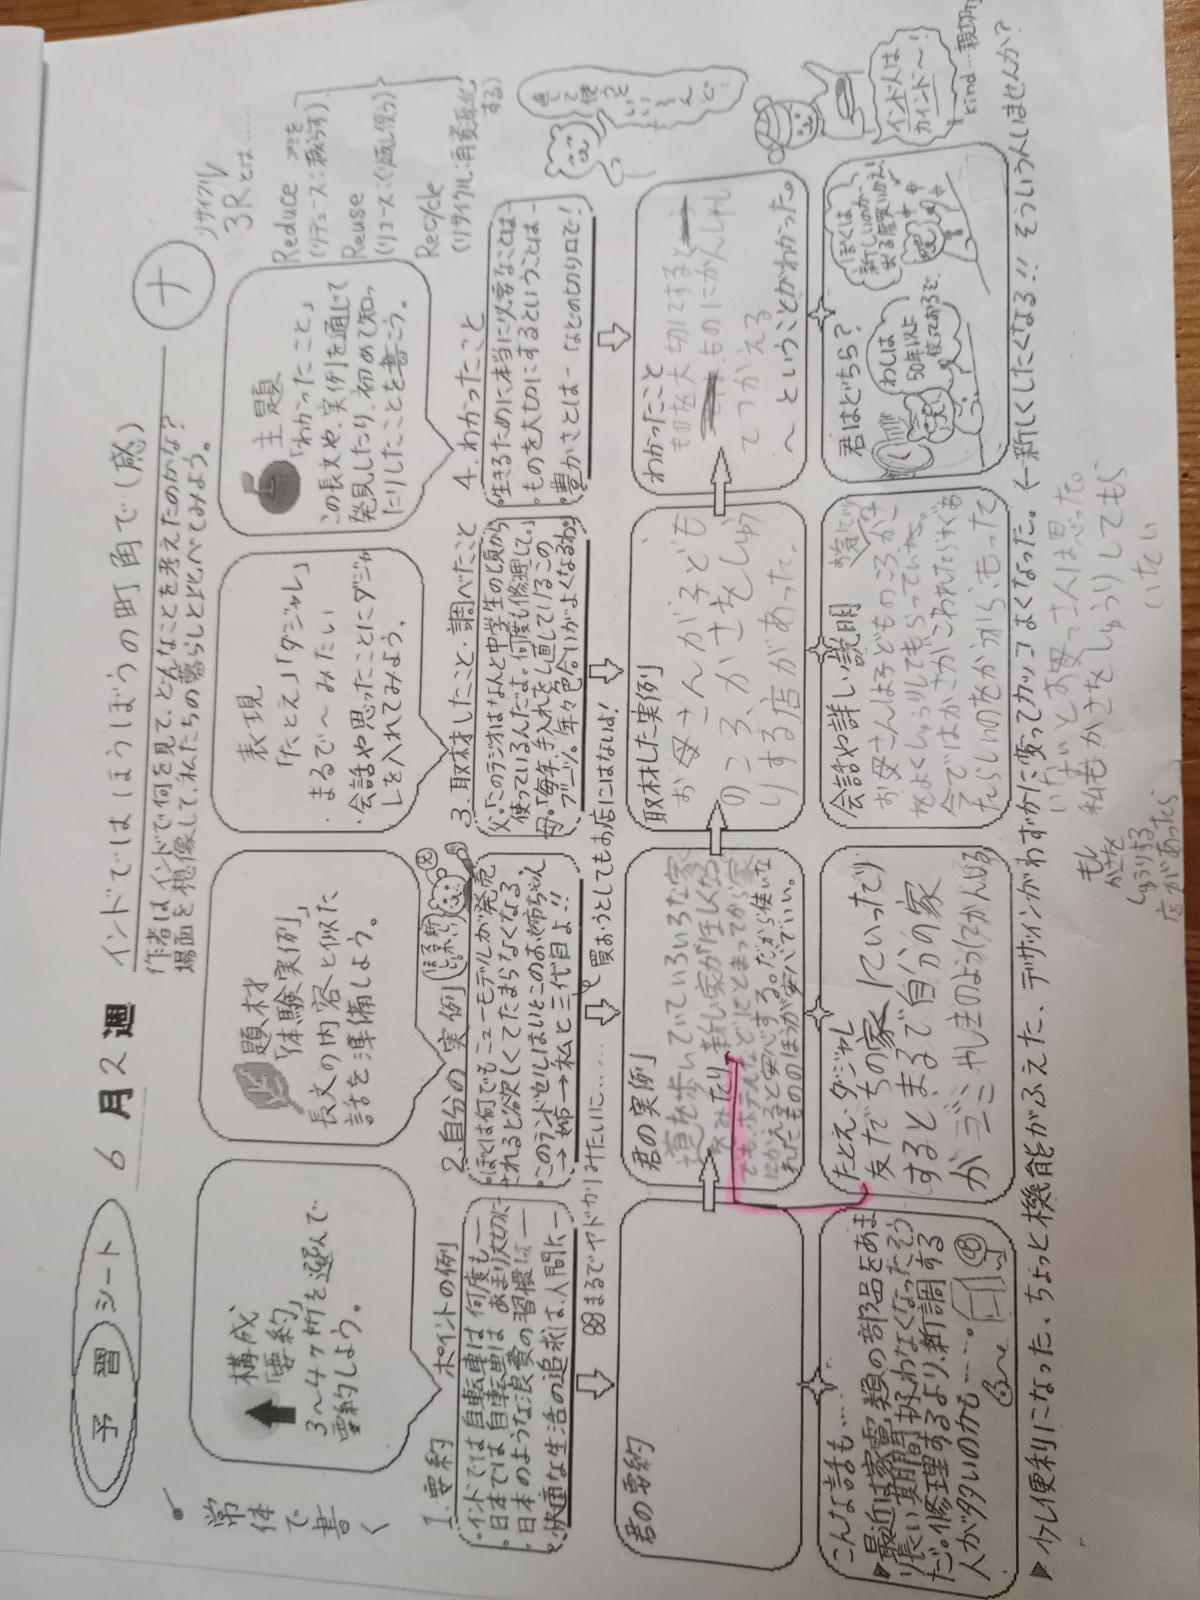 予習シート
6月2週
インドではほうぼうの町角で(感)
ナ
作者はインドで何を見て、どんなことを考えたのかな？
場面を想像して、私たちの暮らしとくらべてみよう。
常体で書く
リサイクル
3Rとは……
Reduce
(リデュース:減らす)
Reuse
(リユース:くり返し使う)
Recycle
(リサイクル:再資源化する)
構成
「要約」
3〜4ヶ所を選んで
要約しよう。
題材
「体験実例」
長文の内容と似た
話を準備しよう。
表現
「たとえ」「ダジャレ」
・まるで〜みたい
・会話や思ったことにダジャ
レを入れてみよう。
主題
「わかったこと」
この長文や、実例を通じて
発見したり、初めて知っ
たりしたことを書こう。
1.要約 ポイントの例
・インドでは自転車は何度も―
・日本では自転車はあまり大切に―
・日本のような浪費の習慣は―
・快適な生活の追求は、人間に―
2.自分の実例
・ぼくは何でもニューモデルが発売
されると欲しくてたまらなくなる
・このランドセルはいとこのお姉ちゃん
→姉→私と三代目よ!!
3.取材したこと・調べたこと
父「このラジオはなんと中学生の頃から
使っているんだよ。何度も修理して。」
母「毎年、手入れをし直しているこの
ブーツ。年々色合いがよくなるわ。」
4.わかったこと
・生きるために本当に必要なことは―
・ものを大切にするということは―
・豊かさとは― などの切り口で!
まるでヤドカリみたいに……
買おうとしてもお店にはないよ!
君の要約
君の実例
道を歩いていていろいろな家
をみたり新しい家がほしくなる
でも、ホテルなどにとまってから家
にかえると安心する。だから使いな
れたもののほうが安心でいい。
取材した実例
お母さんが子ども
のころ、かさをしゅう
りする店があった。
わかったこと
ものを大切にすると
ものにかんしゃし
てつかえる
〜ということがわかった。
こんな話も……
▶最近は家電類の部品をあま
り長い期間扱わなくなったそう
だ。修理するより、新調する
人が多いのかも……。
たとえ・ダジャレ
友だちの家にていったり
するとまるで自分の家
が
会話や詳しい説明
お母さんは子どものころかさ
をよくしゅうりしてもらっていた。
今ではかさがこわれたらすぐあ
たらしいのをかうから、もった
いないとお母さんは思った。
私もかさをしゅうりしてもら
いたい
もし
かさを
しゅうりする
店があったら
君はどちら？
わしは
50年以上
使っておるぞ
ぼくは
新しいのが
出る度買いかえ!
インド人は
カインド〜!
kind…親切な
▶少し便利になった、ちょっと機能がふえた、デザインがわずかに変ってカッコよくなった。←新しくしたくなる!! そういう人いませんか？